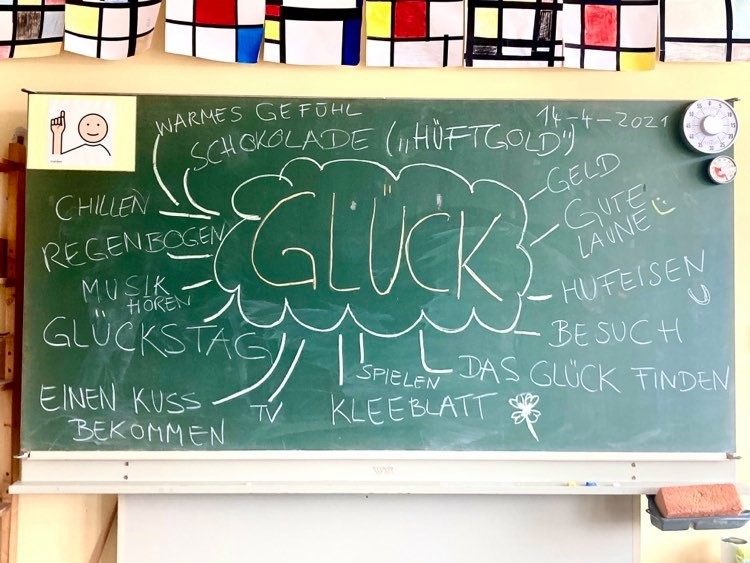 WARMES GEFÜHL
14-4-2021
SCHOKOLADE („HÜFTGOLD")
GELD
CHILLEN
GUTE
LAUNE
REGENBOGEN
GLÜCK
MUSIK
HÖREN
HUFEISEN
GLÜCKSTAG
BESUCH
SPIELEN
DAS GLÜCK FINDEN
EINEN KUSS
BEKOMMEN
TV
KLEEBLATT